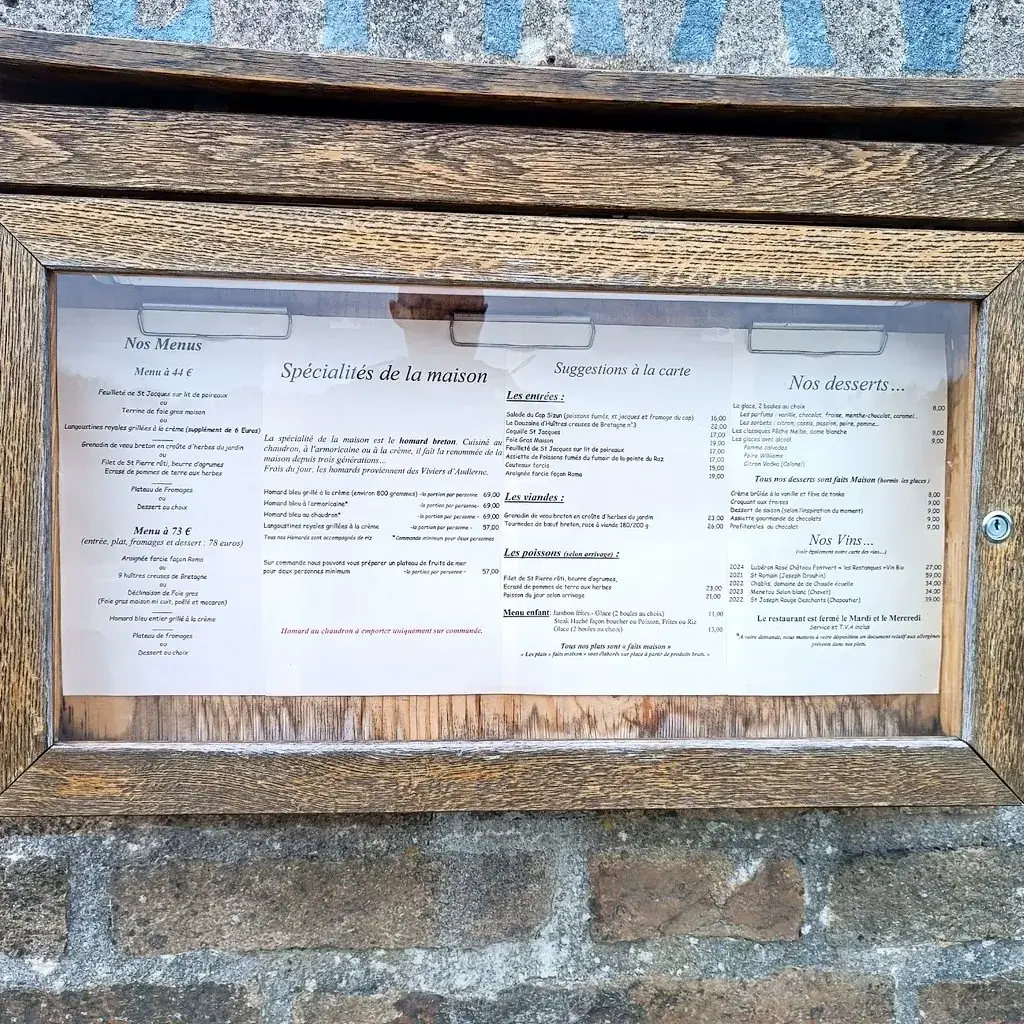 Nos Menus
Menu à 44 €
Feuilleté de St Jacques sur lit de poireaux
ou
Terrine de foie gras maison
ou
Langoustines royales grillées à la crème (supplément de 6 Euros)
Grenadin de veau breton en croûte d'herbes du jardin
ou
Filet de St Pierre rôti, beurre d'agrumes
Ecrasé de pommes de terre aux herbes
Plateau de Fromages
ou
Dessert au choix
Menu à 73 €
(entrée, plat, fromages et dessert : 78 euros)
Araignée farcie façon Roma
ou
9 huîtres creuses de Bretagne
ou
Déclinaison de Foie gras
(Foie gras maison mi cuit, poêlé et macaron)
Homard bleu entier grillé à la crème
Plateau de fromages
ou
Dessert au choix
Spécialités de la maison
La spécialité de la maison est le homard breton. Cuisiné au
chaudron, à l'armoricaine ou à la crème, il fait la renommée de la
maison depuis trois générations...
Frais du jour, les homards proviennent des Viviers d'Audierne.
Homard bleu grillé à la crème (environ 800 grammes) -la portion par personne 69,00
Homard bleu à l'armoricaine* -la portion par personne - 69,00
Homard bleu au chaudron* -la portion par personne - 69,00
Langoustines royales grillées à la crème -la portion par personne - 57,00
Tous nos Homards sont accompagnés de riz *Commande minimum pour deux personnes
Sur commande nous pouvons vous préparer un plateau de fruits de mer
pour deux personnes minimum -la portion par personne - 57,00
Homard au chaudron à emporter uniquement sur commande.
Suggestions à la carte
Les entrées :
Salade du Cap Sizun (poissons fumés, st jacques et fromage du cap) 16,00
La Douzaine d'Huîtres creuses de Bretagne n°3 22,00
Coquille St Jacques 17,00
Foie Gras Maison 19,00
Feuilleté de St Jacques sur lit de poireaux 17,00
Assiette de Poissons fumés du fumoir de la pointe du Raz 17,00
Couteaux farcis 15,00
Araignée farcie façon Roma 19,00
Les viandes :
Grenadin de veau breton en croûte d'herbes du jardin 23,00
Tournedos de bœuf breton, race à viande 180/200 g 26,00
Les poissons (selon arrivage) :
Filet de St Pierre rôti, beurre d'agrumes,
Ecrasé de pommes de terre aux herbes 23,00
Poisson du jour selon arrivage 21,00
Menu enfant: Jambon frites - Glace (2 boules au choix) 11,00
Steak Haché façon boucher ou Poisson, Frites ou Riz
Glace (2 boules au choix) 15,00
Tous nos plats sont « faits maison »
« Les plats « faits maison » sont élaborés sur place à partir de produits bruts. »
Nos desserts...
La glace, 2 boules au choix 8,00
Les parfums : vanille, chocolat, fraise, menthe-chocolat, caramel..
Les sorbets : citron, cassis, passion, poire, pomme...
Les classiques Pêche Melba, dame blanche 9,00
Les glaces avec alcool 9,00
Pomme calvados
Poire Williams
Citron Vodka (Colonel)
Tous nos desserts sont faits Maison (hormis les glaces)
Crème brûlée à la vanille et fève de tonka 8,00
Croquant aux fraises 9,00
Dessert de saison (selon l'inspiration du moment) 9,00
Assiette gourmande de chocolats 9,00
Profiteroles au chocolat 9,00
Nos Vins...
(voir également notre carte des vins...)
2024 Lubéron Rosé Château Fontvert « les Restanques »Vin Bio 27,00
2021 St Romain (Joseph Drouhin) 59,00
2022 Chablis, domaine de de Chaude écuelle 34,00
2023 Menetou Salon blanc (Chavet) 34,00
2022 St Joseph Rouge Deschants (Chapoutier) 39,00
Le restaurant est fermé le Mardi et le Mercredi
Service et T.V.A inclus
*A votre demande, nous mettons à votre disposition un document relatif aux allergènes
présents dans nos plats.